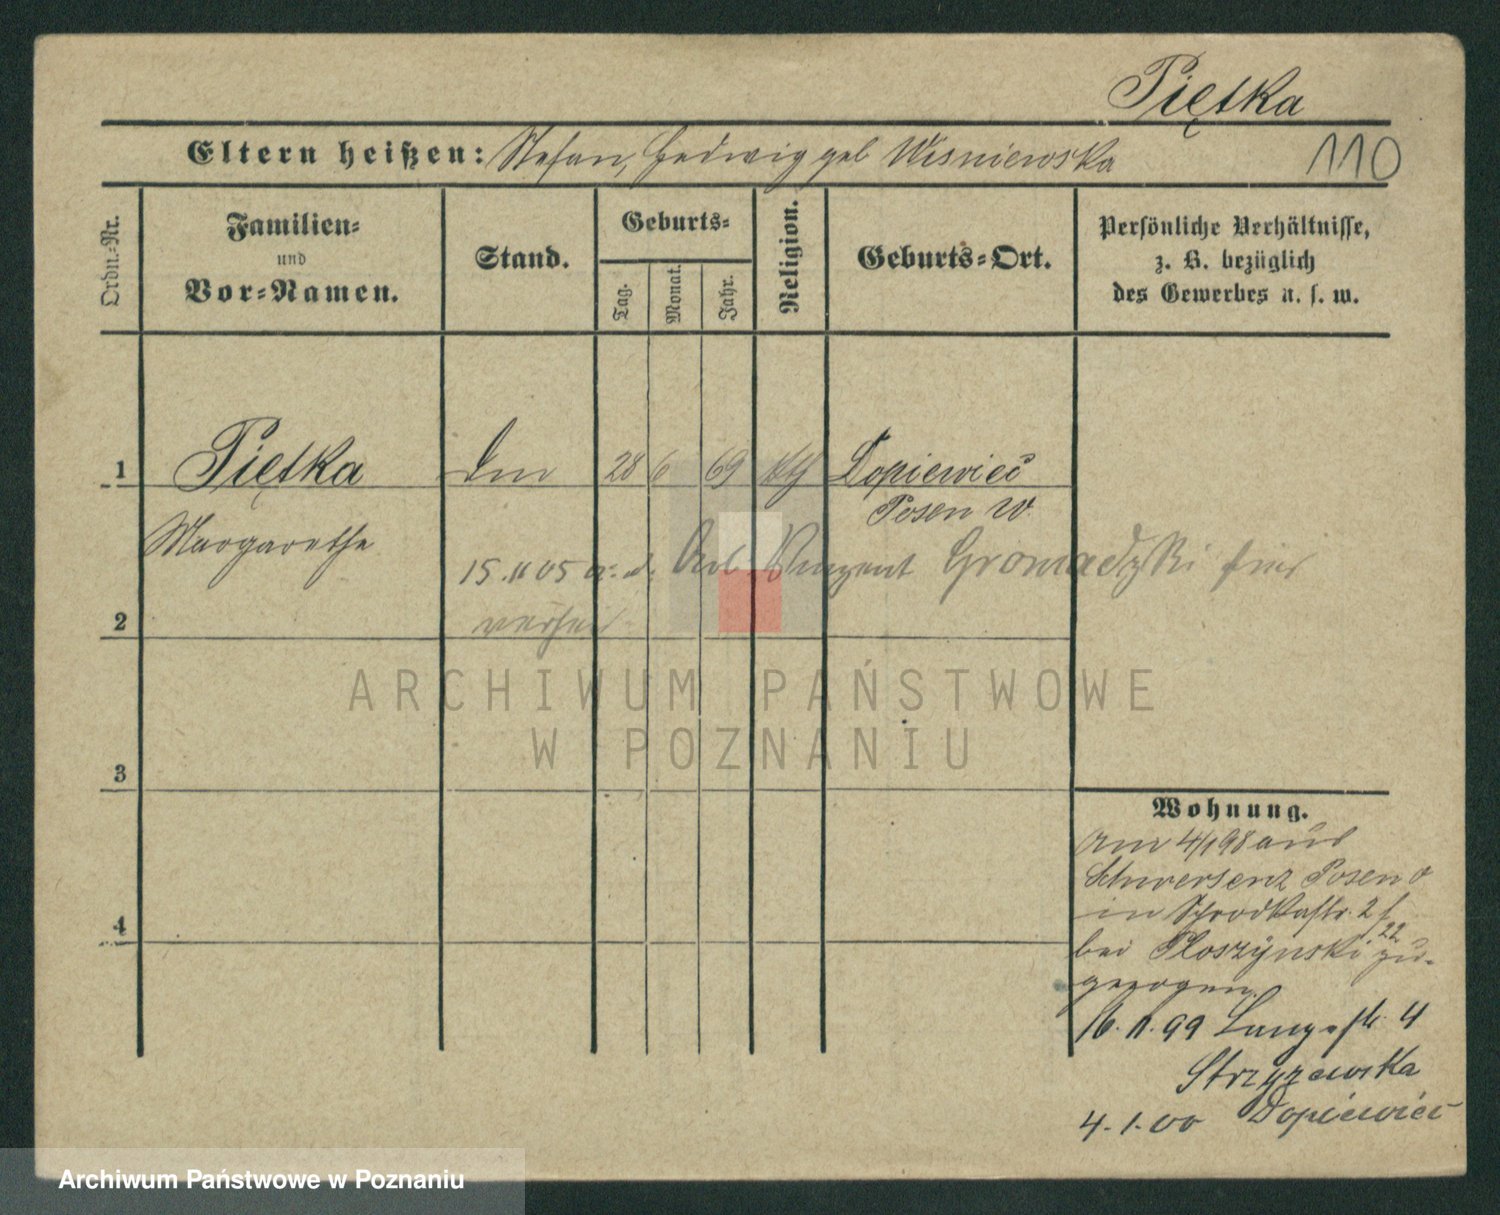 Piętka
110
Eltern heißen: Stefan, Hedwig geb Wisniewska
Ordn.-Nr.
Familien-
und
Vor-Namen.
Stand.
Geburts-
Tag.
Monat.
Jahr.
Religion.
Geburts-Ort.
Persönliche Verhältnisse,
z. B. bezüglich
des Gewerbes u. s. w.
1 Piętka 28 6 69 kth Dopiewiec
Posen W
Margarethe
15.11 05 a. d. Arb. Vinzent Gromadzki hier
verh
2
3
4
Wohnung.
Am 4/1 98 aus
Schwersenz Posen O
in Schrodkastr. 2
bei Ploszÿnski 22 zu-
gezogen.
16.11.99 Langestr. 4
Stryzewska
4.1.00 Dopiewiec
ARCHIWUM PAŃSTWOWE
W POZNANIU
Archiwum Państwowe w Poznaniu